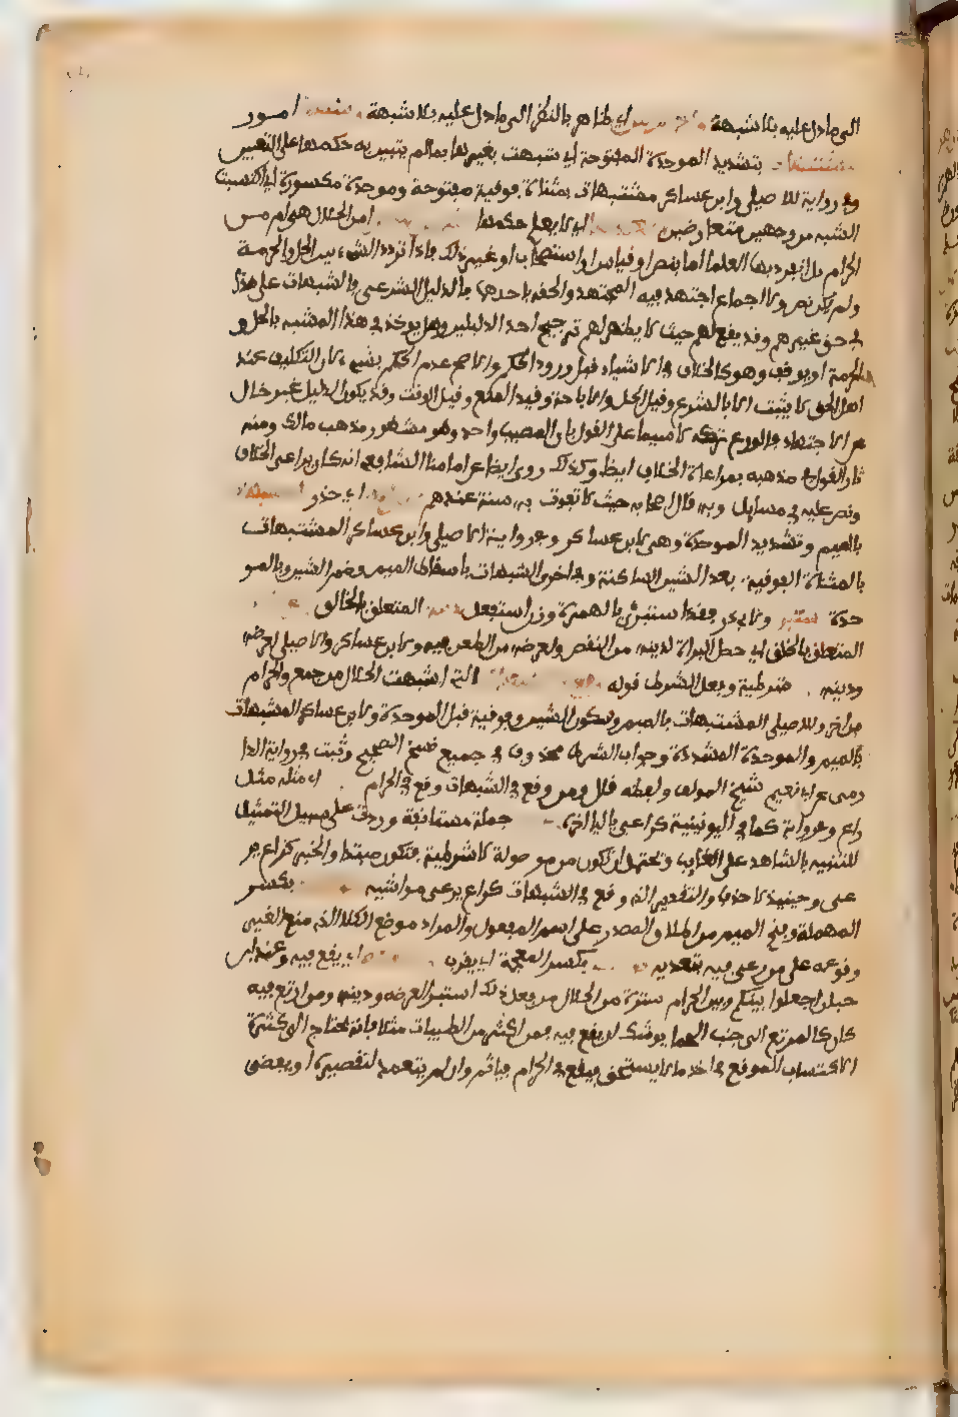 الى ما دل عليه بلا شبهة اي ظاهر بالنظر الى ما دل عليه بلا شبهة امور
بتشديد الموحدة المفتوحة اي شبهت بغيرها مما لم يتبين به حكمها على التعيين
وفي رواية للاصيلي وابن عساكر مشتبهات بمثناة فوقية مفتوحة وموحدة مكسورة اي اكتسبت
الشبه من وجهين متعارضين اي لا يعلم حكمها امن الحلال هي ام من
الحرام بل انفرد بها العلما اما بنص او قياس او استصحاب او غير ذلك فاذا تردد الشيء بين الحل والحرمة
ولم يكن نص ولا اجماع اجتهد فيه المجتهد والحقه باحدهما بالدليل الشرعي فالشبهات على هذا
في حق غيرهم وقد يقع لهم حيث لا يظهر لهم ترجيح احد الدليلين وهل يوخذ في هذا المشتبه بالحل او
الحرمة او يوقف وهو كالخلاف في الاشياء قبل ورود الحكم والاصح عدم الحكم بشيء لان التكليف عند
اهل الحق لا يثبت الا بالشرع وقيل الحل والاباحة وقيل المنع وقيل الوقف وقد يكون الدليل غير خال
عن الاجتهاد فالورع تركه لا سيما على القول بان المصيب واحد وهو مشهور مذهب مالك ومنه
ثار القول في مذهبه بمراعاة الخلاف ايضا وكذلك روي ايضا عن امامنا الشافعي انه كان يراعي الخلاف
ونص عليه في مسايل وبه قال اصحابه حيث لا تفوت به سنة عندهم اي حذر
بالميم وتشديد الموحدة وهي لابن عساكر وفي رواية الاصيلي وابن عساكر المشتبهات
بالمثناة الفوقية بعد الشين الساكنة وفي اخرى الشبهات باسقاط الميم وضم الشين وبالمو
حدة ولابي ذر فقد استبرأ بالهمزة وزن استفعل المتعلق بالخالق
المتعلق بالخلق اي حصل البراة لدينه من النقص ولعرضه من الطعن فيه ولابن عساكر والاصيلي لعرضه
ودينه شرطية وفعل الشرط قوله التي اشبهت الحلال من جمع والحرام
من اخر وللاصيلي المشتبهات بالميم وسكون الشين وفوقية قبل الموحدة ولابن عساكر المشبهات
بالميم والموحدة المشددة وجواب الشرط محذوف في جميع نسخ الصحيح وثبت في رواية الدا
رمي عن ابي نعيم شيخ المولف ولفظه قال ومن وقع في الشبهات وقع في الحرام اي مثله مثل
راع وفي رواية كما في اليونينية كراعي بالياء اخره جملة مستانفة وردت على سبيل التمثيل
للتنبيه بالشاهد على الغايب وتحتمل ان تكون من موصولة لا شرطية فتكون مبتدا والخبر كراع ير
عى وحينيذ لا حذف والتقدير الذي وقع في الشبهات كراع يرعى مواشيه بكسر
المهملة وفتح الميم من اطلاق المصدر على اسم المفعول والمراد موضع الكلا الذي منع الغير
وتوعد على من رعى فيه بتعديه بكسر المعجمة اي يقرب اي يقع فيه وعند ابن
حبان اجعلوا بينكم وبين الحرام سترة من الحلال من فعل ذلك استبرا لعرضه ودينه ومن ارتع فيه
كان كالمرتع الى جنب الحما يوشك ان يقع فيه فمن اكثر من الطيبات مثلا فانه يحتاج الى كثرة
الاكتساب الموقع في اخذ ما لا يستحق فيقع في الحرام فياثم وان لم يتعمد لتقصيره او يفضي